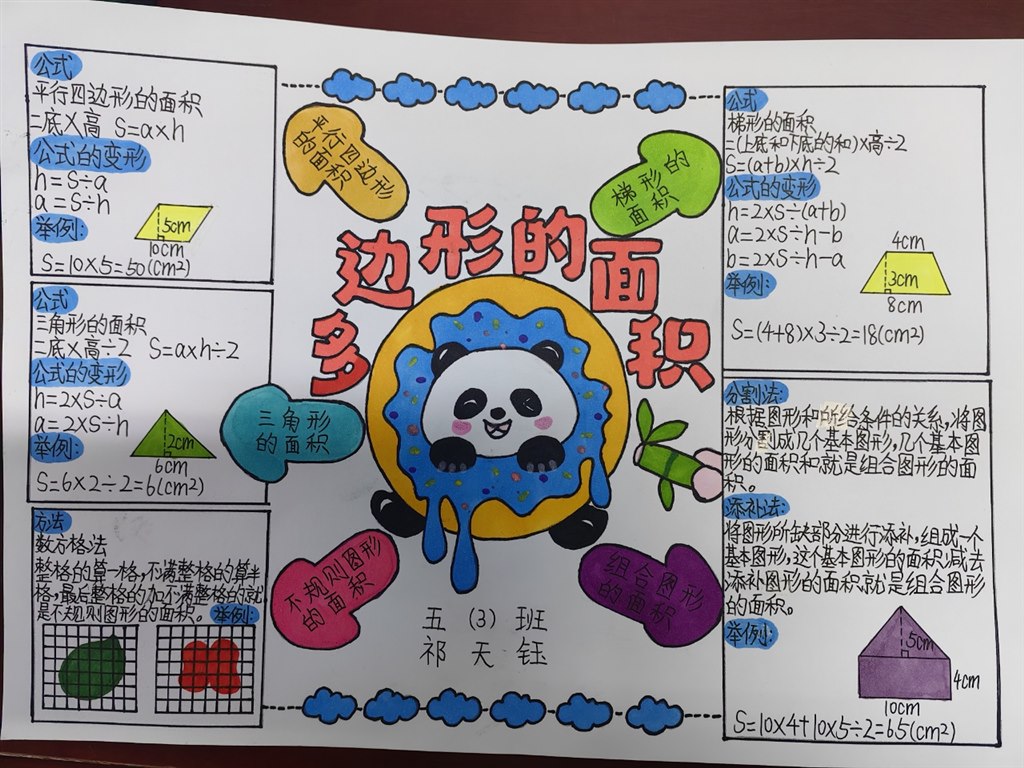 多边形的面积
平行四边形
的面积
梯形的
面积
三角形
的面积
不规则图形
的面积
组合图形
的面积
五（3）班
祁天钰
公式
平行四边形的面积
=底×高 S=a×h
公式的变形
h=S÷a
a=S÷h
举例:
5cm
10cm
S=10×5=50(cm²)
公式
三角形的面积
=底×高÷2 S=a×h÷2
公式的变形
h=2×S÷a
a=2×S÷h
举例:
2cm
6cm
S=6×2÷2=6(cm²)
方法
数方格法
整格的算一格,不满整格的算半
格,最后整格的加不满整格的就
是不规则图形的面积。举例:
公式
梯形的面积
=(上底和下底的和)×高÷2
S=(a+b)×h÷2
公式的变形
h=2×S÷(a+b)
a=2×S÷h-b
b=2×S÷h-a
举例:
4cm
3cm
8cm
S=(4+8)×3÷2=18(cm²)
分割法:
根据图形和所给条件的关系,将图
形分割成几个基本图形,几个基本图
形的面积和就是组合图形的面
积。
添补法:
将图形所缺部分进行添补,组成一个
基本图形,这个基本图形的面积减去
添补图形的面积就是组合图形
的面积。
举例:
5cm
4cm
10cm
S=10×4+10×5÷2=65(cm²)